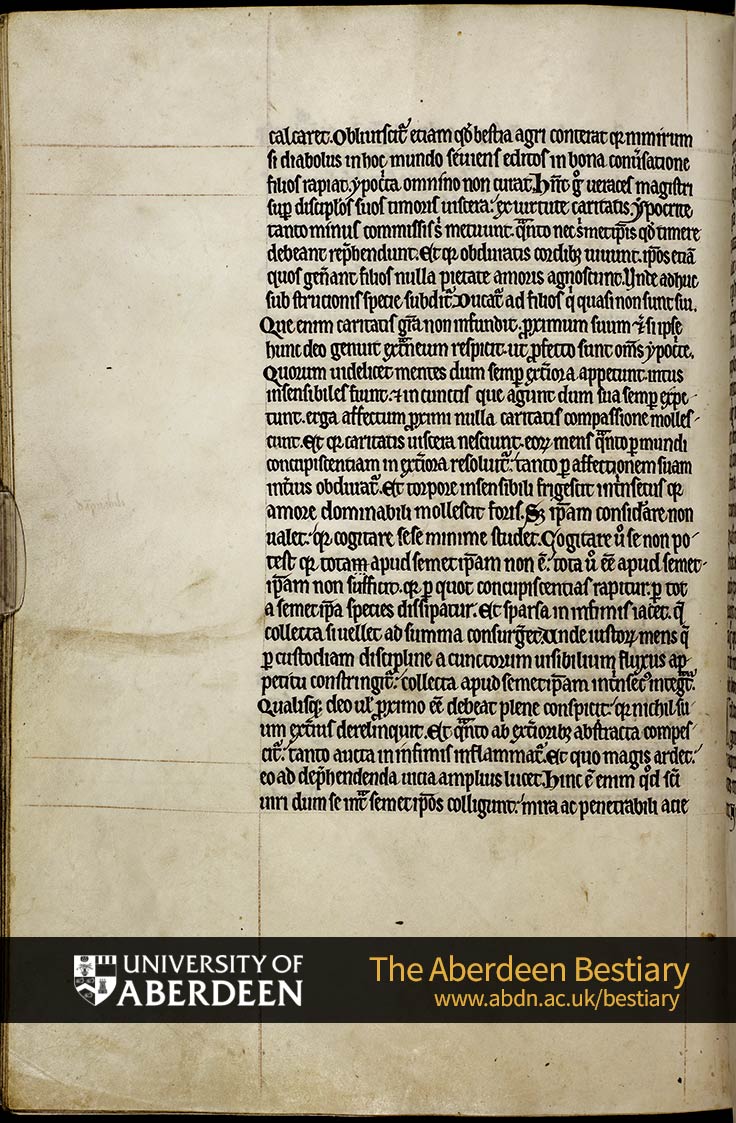 calcaret. Obliuiscit᷑ etiam qd̛ bestia agri conterat qr nimirum
si diabolus in hoc mundo seuiens editos in bona conu̅satione
filios rapiat. ypoc̅ta omnino non curat. Hn̅t g̊ ueraces magistri
sup̱ discip̅los suos timoris uiscera. ex uirtute caritatis. Ypocrite
tanto minus commissis s̅ metuunt. qn̅to nec s̅metip̅is qd̛ timere
debeant rep̅hendunt. Et qr obduratis cordibꝫ uiuunt. ip̅os etia̅
quos gen̅ant filios nulla pietate amoris agnoscunt. Unde adhuc
sub strucionis specie subdit᷑. Ducat᷑ ad filios q̍ quasi non sunt sui.
Que enim caritatis gr̅a non infundit. ꝓximum suum ⁊ si ipse
hunc deo genuit ext̅neum respicit. ut ꝓfecto sunt om̅s ypoc̅te.
Quorum uidelicet mentes dum semp̱ ext̅iora appetunt. intus
insensibiles fiunt. ⁊ in cunctis que agunt dum sua semp̱ expe-
tunt. erga affectum ꝓximi nulla caritatis compassione molles-
cunt. Et qr caritatis uiscera nesciunt. eoꝝ mens qn̅to ꝑ mundi
concupiscentiam in ext̅iora resoluit᷑. tanto ꝑ affectionem suam
int̅ius obdurat᷑. Et torpore insensibili frigescit int̅nsecus qr
amore dominabili mollescit foris. Sꝫ ip̅am consid̅are non
ualet. qr cogitare sese minime studet. Cogitare u̅ se non po-
test qr totam apud semetip̅am non e̅. tota u̅ ee̅ apud semet-
ip̅am non sufficit. qr ꝑ quot concupiscentias rapitur. ꝑ tot
a semetip̅a species dissipatur. Et sparsa in infimis iacet. q̅
collecta si uellet ad summa consurg̅et. Unde iustoꝝ mens q̅
ꝑ custodiam discipline a cunctorum uisibilium fluxus ap-
petitu constringit᷑. collecta apud semetip̅am int̅nsec᷒ integ̅t᷑.
Qualisqꝫ deo ul̛ ꝓximo ee̅ debeat plene conspicit. qr nichil su-
um ext̅ius derelinquit. Et qn̅to ab ext̅ioribꝫ abstracta compes-
cit᷑. tanto aucta in infimis inflammat᷑. Et quo magis ardet.
eo ad dep̅hendenda uicia amplius lucet. Hinc e̅ enim qd̛ sc̅i
uiri dum se int̅ semetip̅os colligunt. mira ac penetrabili acie
UNIVERSITY OF
ABERDEEN
The Aberdeen Bestiary
www.abdn.ac.uk/bestiary